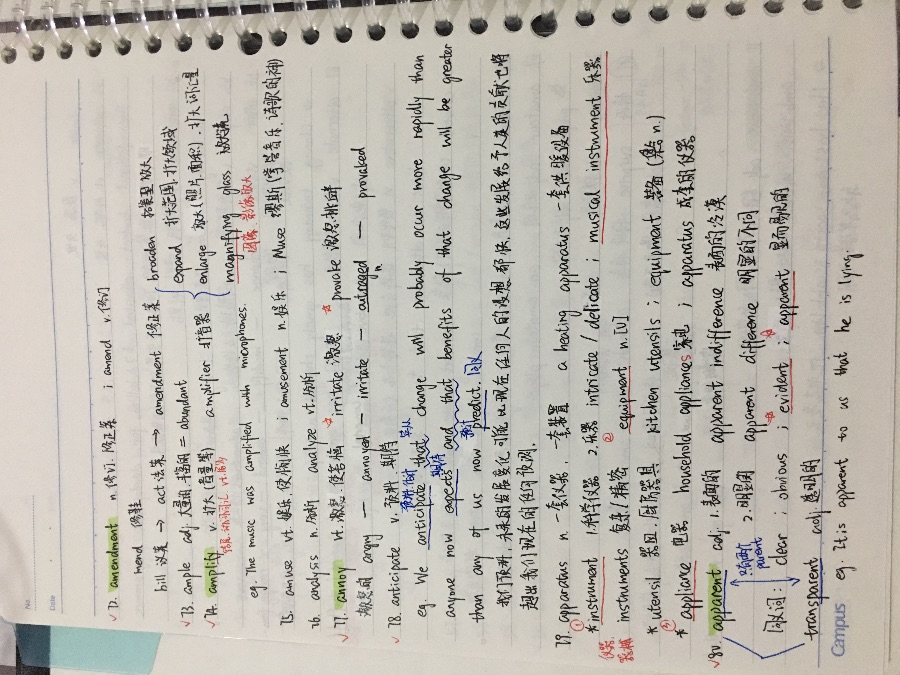 No.
Date
√72. amendment n.修订.修正案 ; amend v.修订
mend 修鞋
bill 议案 → act 法案 → amendment 修正案
√73. ample adj.大量的.丰富的 = abundant
√74. amplify v.扩大(音量等) amplifier 扩音器
broaden 拓宽至放大
expand 扩大范围.扩大领域
enlarge 放大(照片.面积).扩大词汇量
magnifying glass 放大镜
图像.影像放大
eg. The music was amplified with microphones.
75. amuse vt.娱乐.使愉快 ; amusement n.娱乐 ; Muse 缪斯(掌管音乐.诗歌的神)
76. analysis n.分析 analyze vt.分析
√77. annoy vt.激怒.使苦恼 ☆irritate 激怒 ☆provoke 激怒.挑衅
激怒的 angry — annoyed — irritate — outraged — provoked
√78. anticipate v.预料.期待
eg. We anticipate that change will probably occur more rapidly than
anyone now expects and that benefits of that change will be greater
than any of us now predict. 同义
我们预料,未来的发展变化可能比现在任何人的设想都快,这些发展给予人类的贡献也将
超出我们现在的任何预测.
79. apparatus n.一套仪器.一套装置 a heating apparatus 一套供暖设备
* ① instrument 1.科学仪器 2.乐器 intricate / delicate ; musical instrument 乐器
仪器.器械
instruments 复杂/精密 ② equipment n.[U]
* utensil 器皿.厨房器具 kitchen utensils ; equipment 装备
* ③ appliance 电器 household appliances 家电 ; apparatus 成套的仪器
√80. apparent adj. 1.表面的 apparent indifference 表面的冷漠
2.明显的 apparent difference 明显的不同
parent
同义词: clear ; obvious ; ☆evident ; ☆apparent 显而易见的
transparent adj.透明的
eg. It is apparent to us that he is lying.
Campus